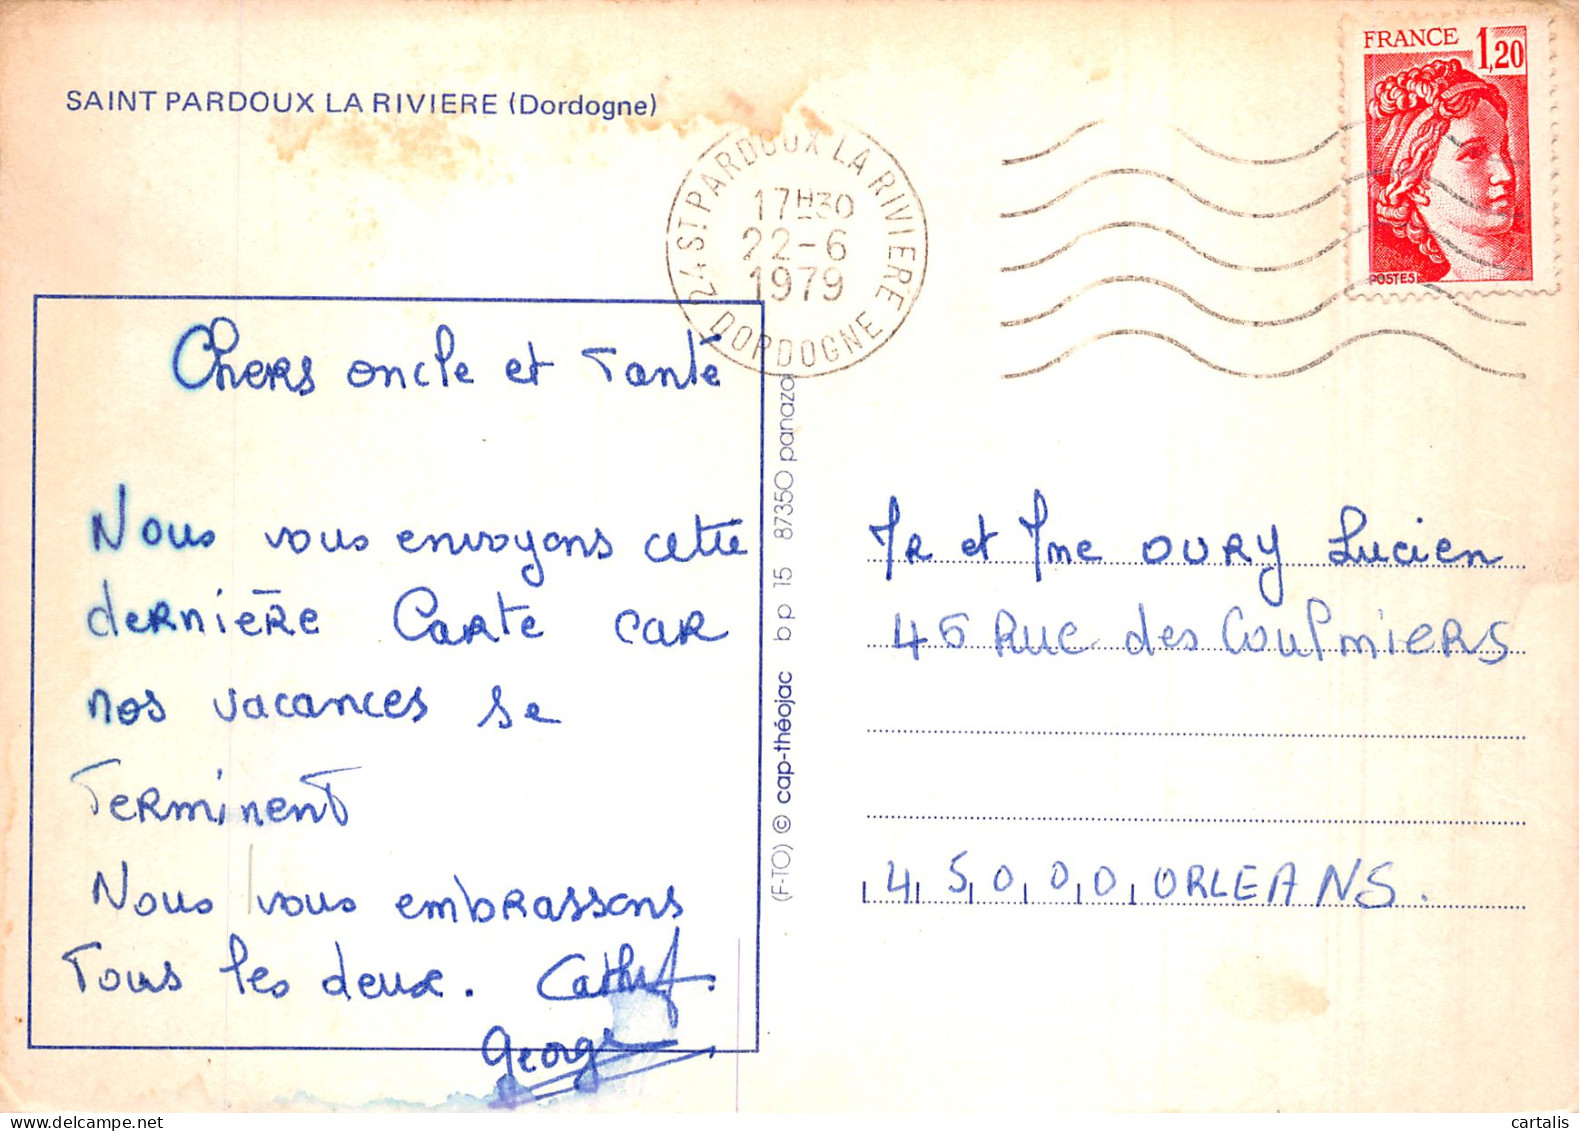 SAINT PARDOUX LA RIVIERE (Dordogne)
FRANCE 1,20
POSTES
24 ST PARDOUX LA RIVIERE
17H30
22-6
1979
DORDOGNE
Chers oncle et Tante
Nous vous envoyons cette
dernière Carte car
nos vacances se
Terminent
Nous vous embrassons
Tous les deux.
George
(F-TO) © cap-théojac bp 15 87350 panazol
Mr et Mme OURY Lucien
45 Rue des Coulmiers
45000 ORLEANS.
cartalis